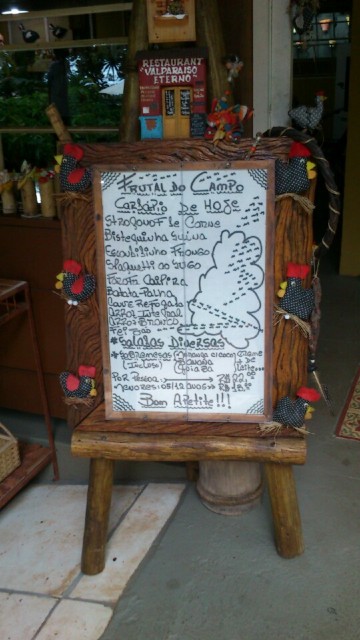 RESTAURANT
"VALPARAISO
ETERNO"
FRUTAL DO CAMPO
CARDÁPIO DE HOJE
STROGONOFF DE CARNE
BISTEQUINHA SUÍNA
FRANGO
ESPAGUETTI AO SUGO
FAROFA CAIPIRA
BATATA PALHA
COUVE REFOGADA
ARROZ INTEGRAL
ARROZ BRANCO
FEIJÃO
*SALADAS DIVERSAS
*SOBREMESAS
BANANA
GOIABA
POR PESSOA
BOM APETITE!!!